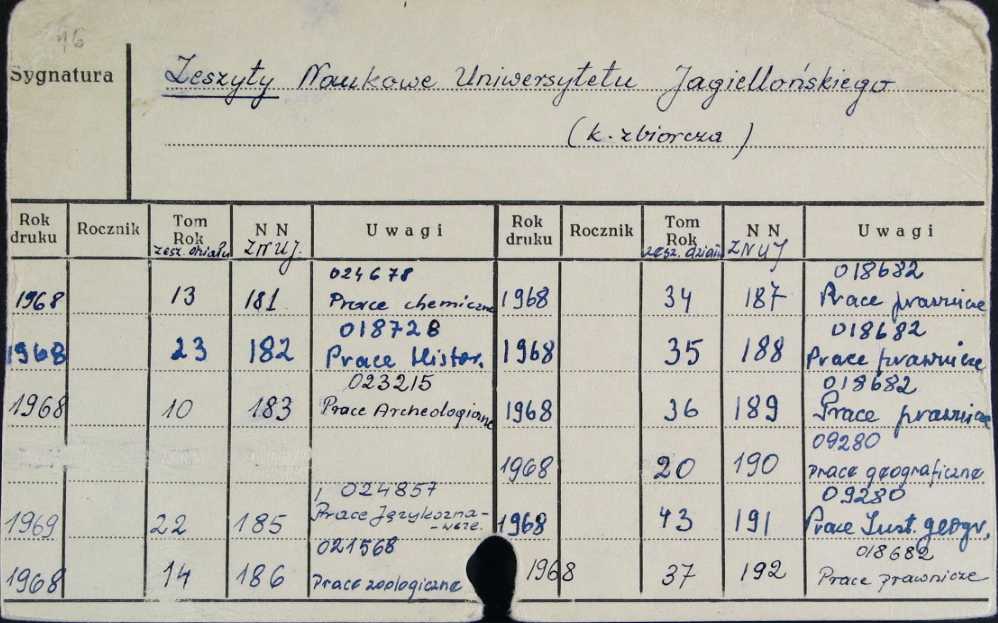 46
Sygnatura
Zeszyty Naukowe Uniwersytetu Jagiellońskiego
(k. zbiorcza)
Rok druku Rocznik Tom Rok zesz. działu N N ZNUJ. Uwagi Rok druku Rocznik Tom Rok zesz. działu N N ZNUJ Uwagi
024678 018682
1968 13 181 Prace chemiczne 1968 34 187 Prace prawnicze
018728 018682
1968 23 182 Prace Histor. 1968 35 188 Prace prawnicze
023215 018682
1968 10 183 Prace Archeologiczne 1968 36 189 Prace prawnicze
09280
1968 20 190 prace geograficzne
024857 09280
1969 22 185 Prace Językozna-
-wcze. 1968 43 191 Prace Inst. geogr.
021568 018682
1968 14 186 Prace zoologiczne 1968 37 192 Prace prawnicze